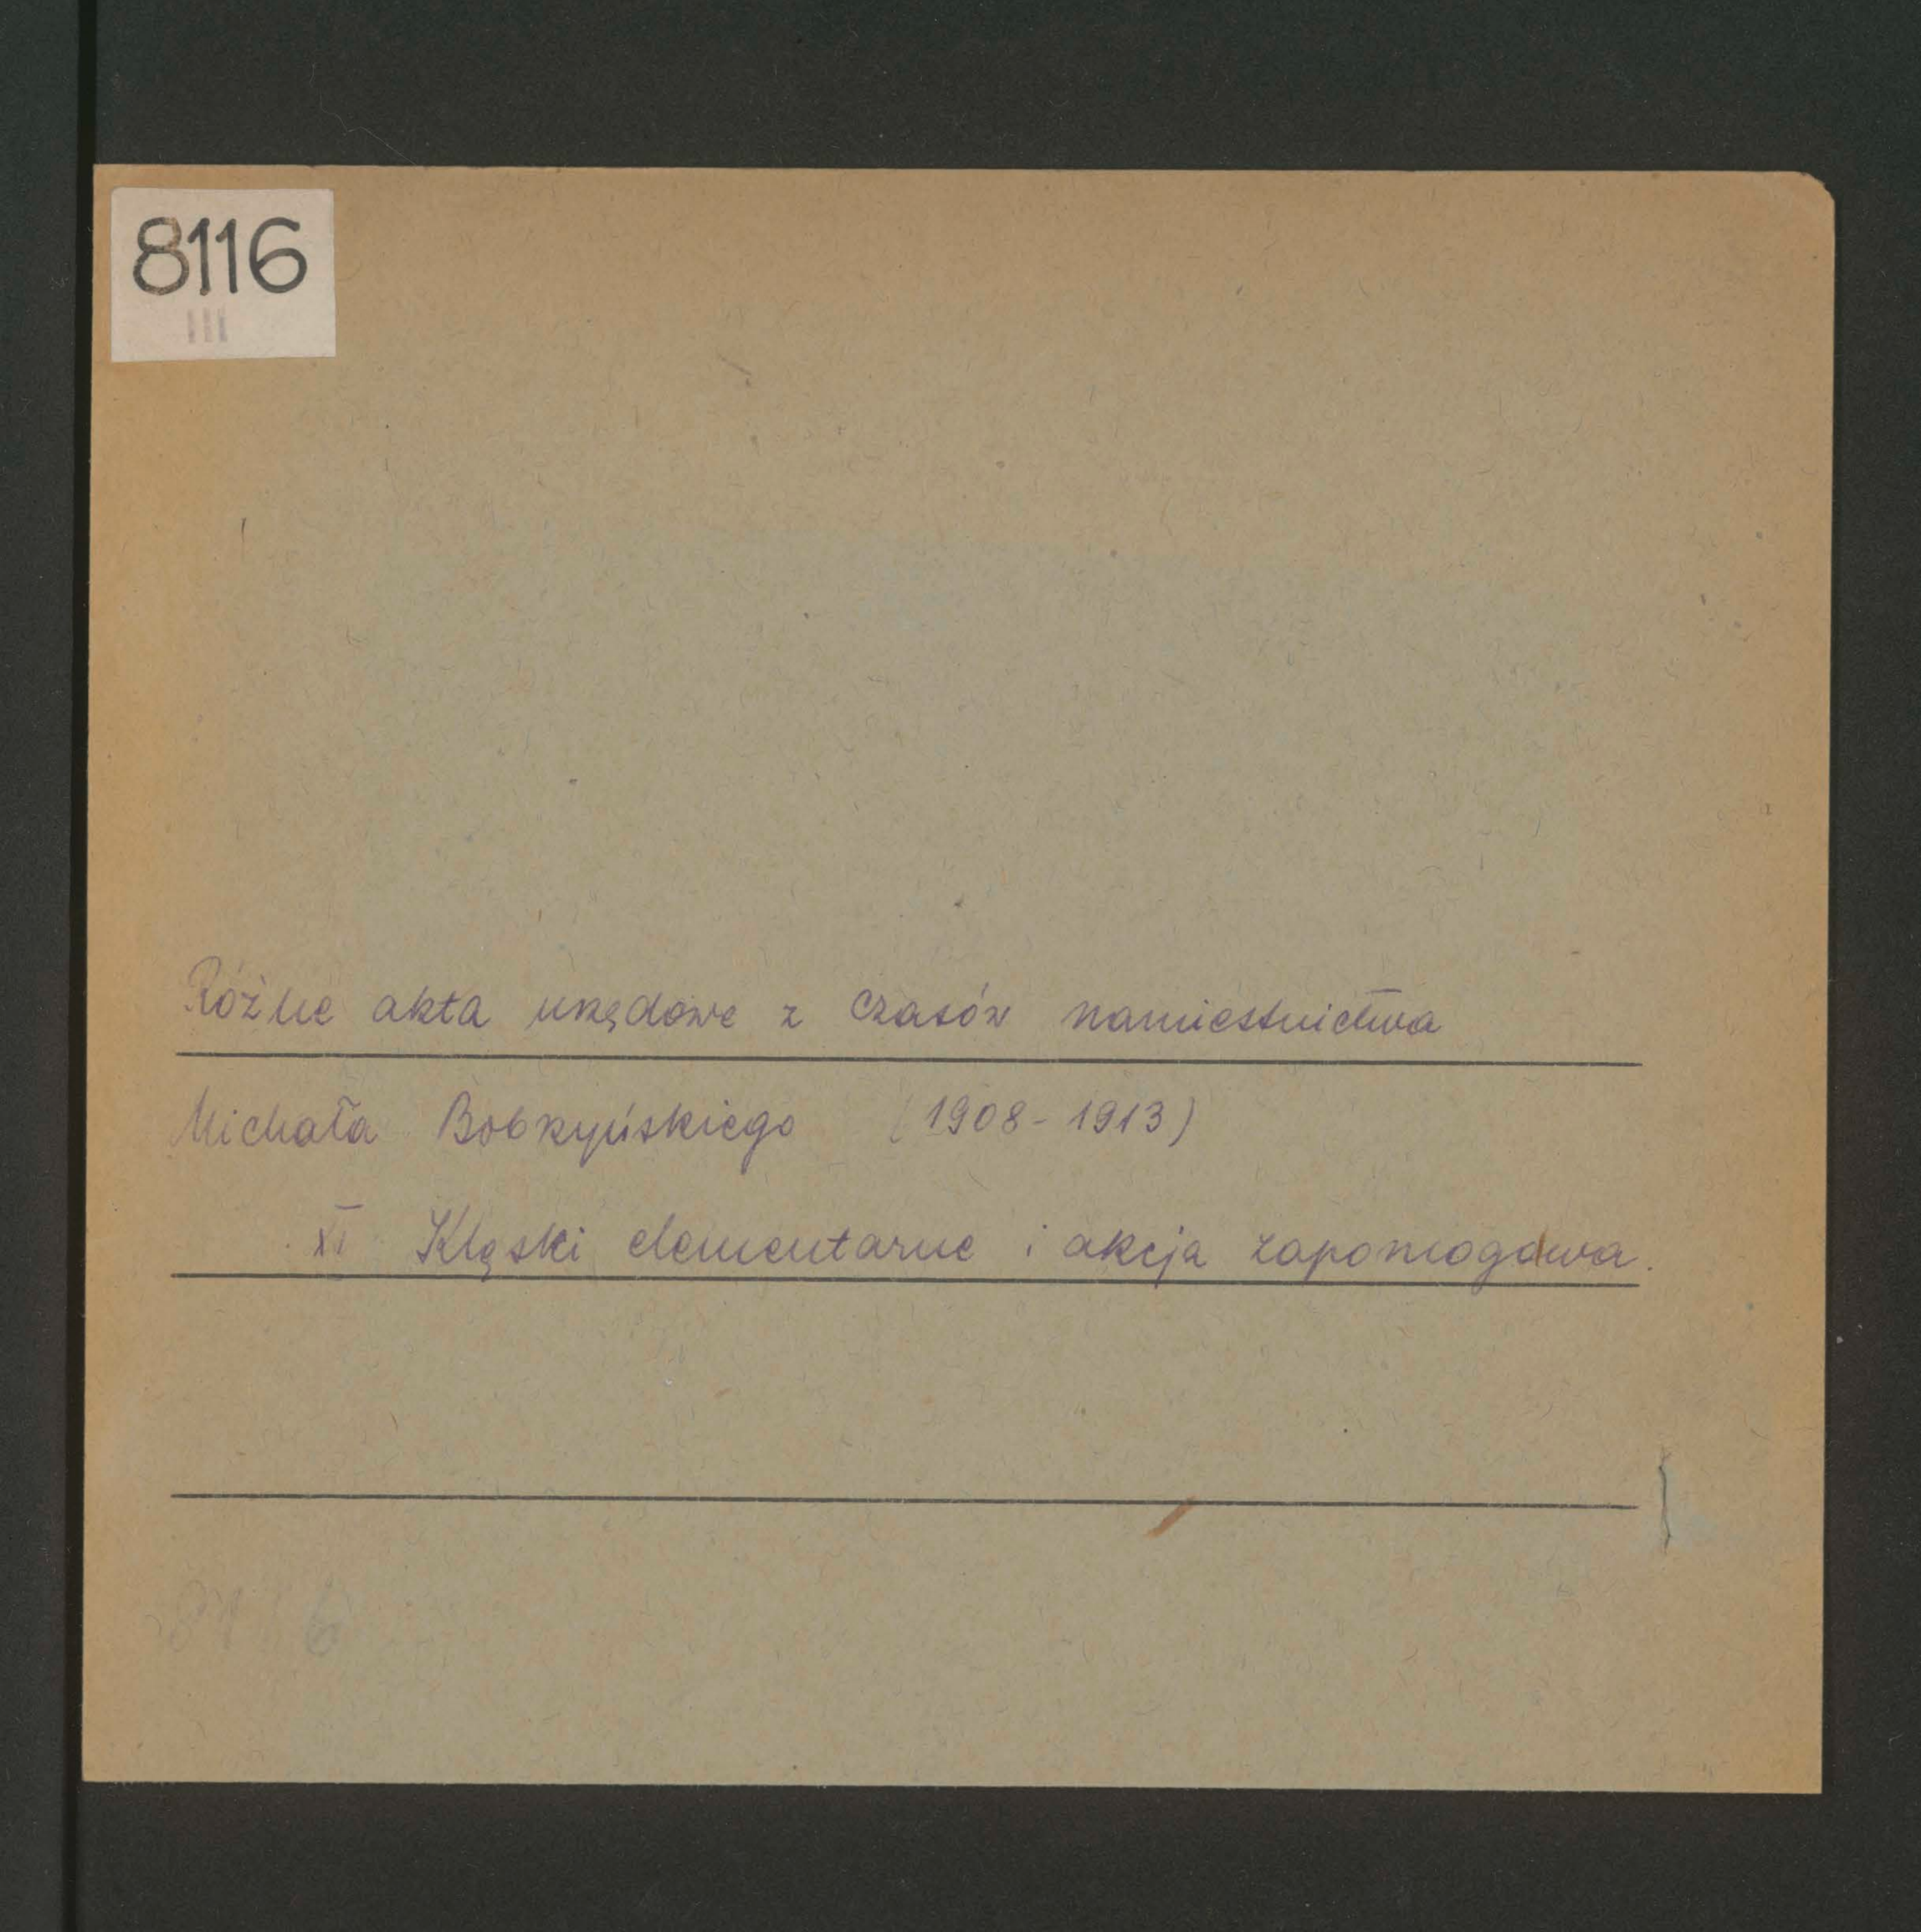 8116
III
Różne akta urzędowe z czasów namiestnictwa
Michała Bobrzyńskiego (1908-1913)
XI Klęski elementarne i akcja zapomogowa.
8116